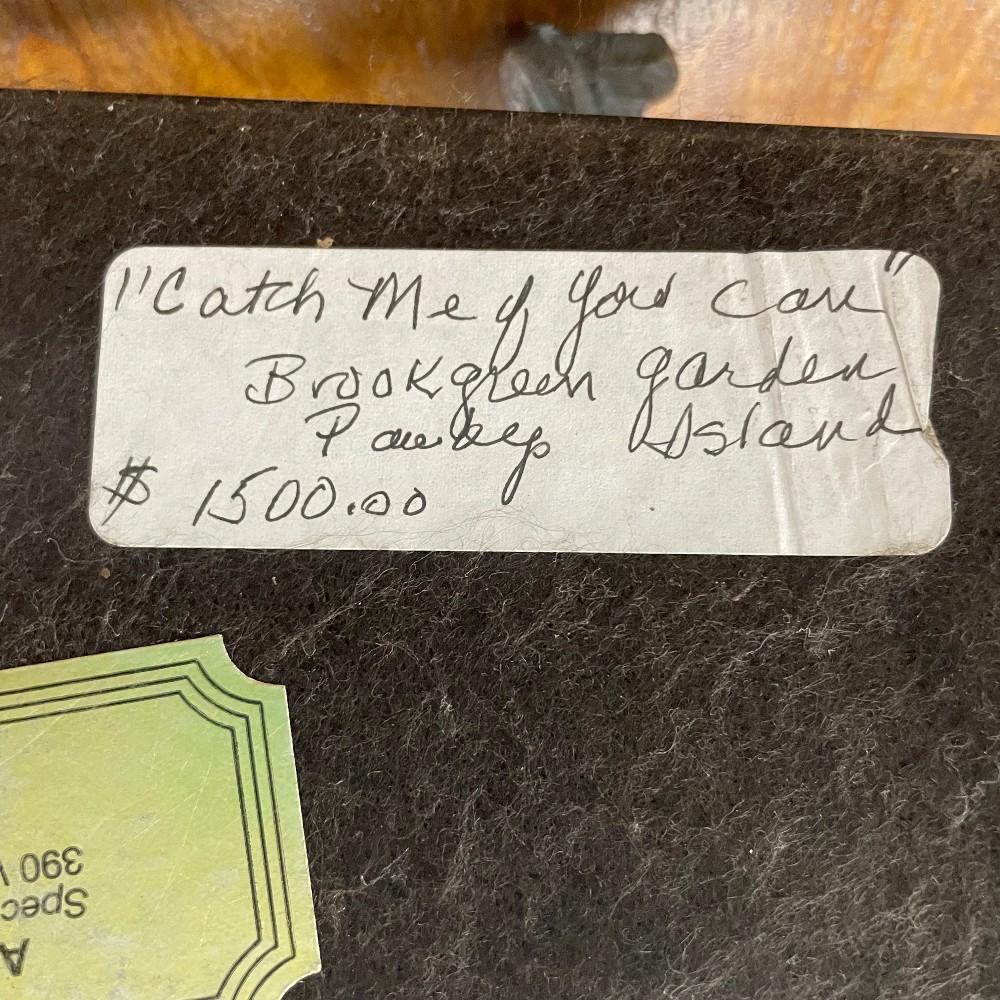 "Catch Me if You Can"
Brookgreen garden
Pawleys Island
$ 1500.00
A
Spec
390